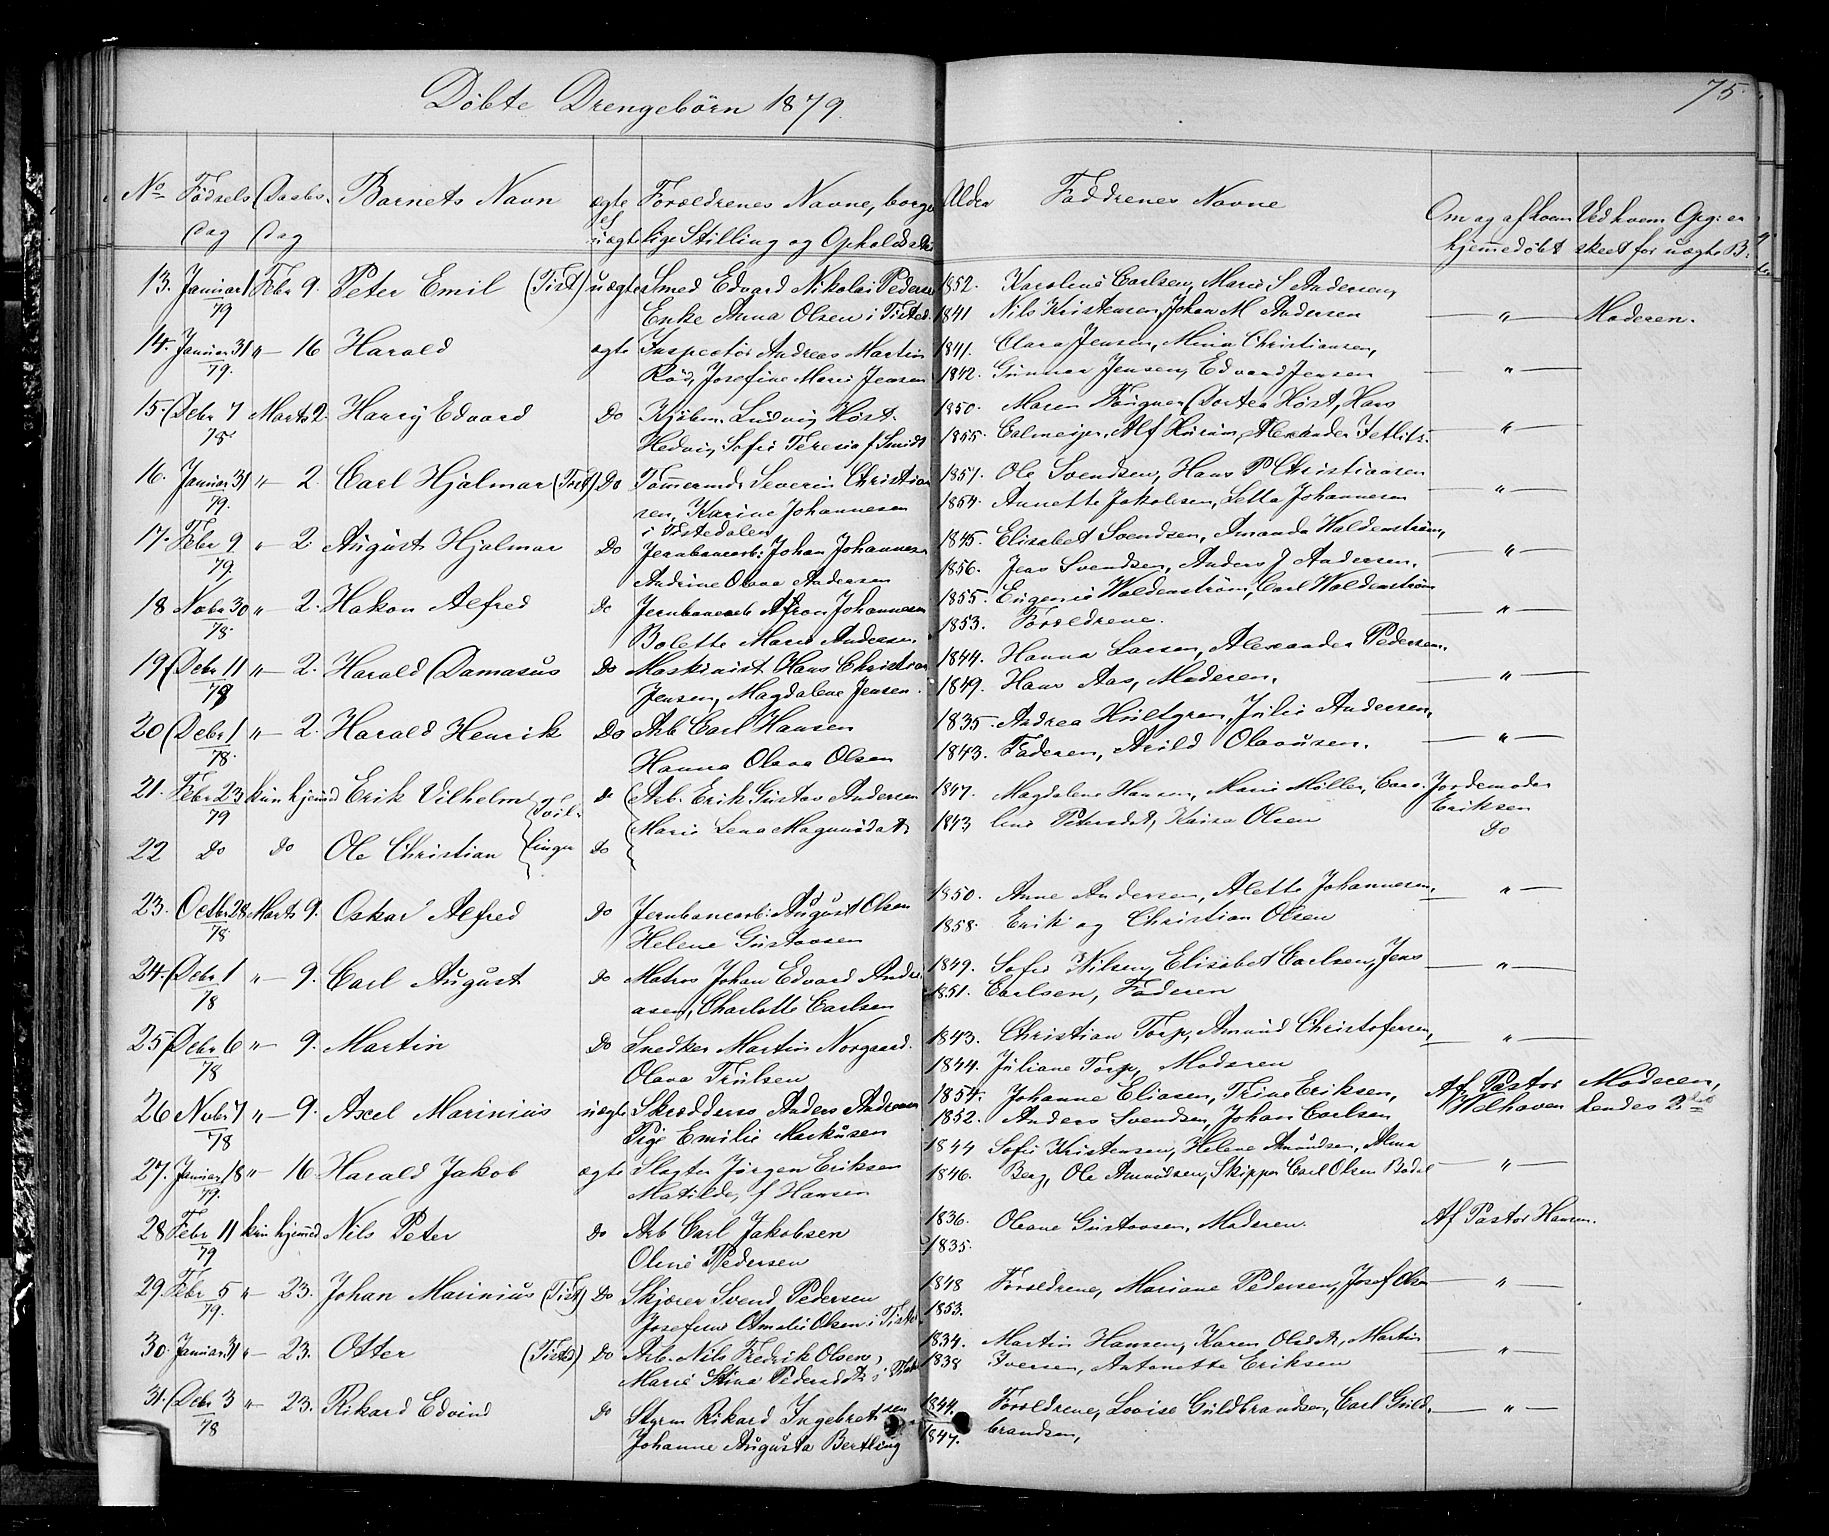 Döbte Drengebörn 1879.
75.
No Födsels Daabs Barnets Navn ægte Forældrenes Navne, borger Alder Faddrenes Navne Om og af hvem Ved hvem Opg: er
dag dag uægte lige Stilling og Opholds hjemmedöbt skeet for uægte B.
13. Januar 1 Febr 9. Peter Emil (Tist) uægte Smed Edvard Nikolai Peders 1852. Karoline Carlsen, Marie S Andersen,
79 Enke Anna Olsen i Tisted. 1841 Nils Kristensen, Johan M Andersen — " — Moderen.
14. Januar 31 " — 16 Harald ægte Inspectör Andreas Martin 1841. Clara Jensen, Mina Christiansen,
79. Röd, Josefine Marie Jensen 1842. Gunnar Jensen, Edvard Jensen — " —
15. Debr 7 Marts 2. Harry Edvard Do Kjöbm. Ludvig Höst. 1850. Maren Dortea Höst, Hans
78 Hedvig Sofie Teresia f Smidt 1855. Alf Hurum, Alexander — " —
16. Januar 31 " — 2. Carl Hjalmar (Tist) Do Tömmermd. Severin Christian 1857. Ole Svendsen, Hans P Christiansen
79. sen, Karine Johannesen 1854. Annette Jakobsen, Setta Johannesen — " —
i Tistedalen
17. Febr 9 " — 2. August Hjalmar Do Jernbanearb: Johan Johannes 1845. Elisabet Svendsen, Amanda Waldenström,
79. Andrine Olava Andersen 1856. Jens Svendsen, Anders J Andersen. — " —
18 Novbr 30 " — 2. Hakon Alfred Do Jernbanearb Johannesen 1855. Eugenie Waldenström, Carl Waldenström
78. Bolette Marie Andersen. 1853. Forældrene. — " —
19 Debr 11 " — 2. Harald Damasus Do Maskinist Hans Christian 1844. Hanna Larsen, Alexander Pedersen.
78 Jensen, Magdalene Jensen. 1849. Hans Aas, Moderen. — " —
20 Debr 1 " — 2. Harald Henrik Do Arb Carl Hansen 1835. Andrea Hultgren, Julie Andersen,
78. Hanna Olava Olsen 1843. Faderen, Arild Olausen. — " —
21. Febr 23 kun hjemmd Erik Vilhelm Tvil- do Arb. Erik Gustav Andersen 1847. Magdalene Hansen, Marie Möller, Caro- Jordemoder
79 Marie Lena Magnusdat 1843 line Petersdat, Kaisa Olsen Eriksen
22 Do Do Ole Christian linger do Do
23. Octbr 28 Marts 9. Oskar Alfred Do Jernbanearb: August Olsen 1850. Anne Andersen, Alette Johannesen, — " —
78 Helene Gustavsen 1858. Erik og Christian Olsen
24. Debr 1 " — 9. Carl August Do Matros Johan Edvard Andre 1849. Sofie Nilsen, Elisabet Carlsen, Jens — " —
78 asen, Charlotte Carlsen 1851. Carlsen, Faderen
25 Debr 6 " — 9. Martin Do Snedker Martin Norgaard. 1843. Christian Torp, Amund Christofersen, — " —
78 Olava Trulsen 1844. Juliane Torp, Moderen
26 Novbr 7 " — 9. Axel Marinius uægte Skrædders. Anders Andreasen 1854. Johanne Eliasen, Trine Eriksen, Af Pastor Moderen,
78 Pige Emilie Markusen 1852. Anders Svendsen, Johan Carlsen Welhaven hendes 2det
27. Januar 18 " — 16 Harald Jakob ægte Slagter Jörgen Eriksen 1844 Sofie Kristensen, Helene Amundsen, Alma
79. Matilde, f Hansen 1846. Berg, Ole Amundsen, Skipper Carl Olsen Bodal — " —
28 Febr 11 kun hjemmed Nils Peter Do Arb Carl Jakobsen 1836. Oleane Gustavsen, Moderen. Af Pastor Hansen.
79 Oline Pedersen 1835.
29. Febr 5 " — 23. Johan Marinius (Tist) Do Skjærer Svend Pedersen 1848 Forældrene, Mariane Pedersen, Josef Olsen — " —
79. Josefine Amalie Olsen i Tisted. 1853.
30. Januar 31 " — 23. Otter (Tisted) Do Arb. Nils Fredrik Olsen, 1834. Martin Hansen, Karen Olsdat, Martin
Marie Stina Pedersdat i 1838 Iversen, Antonette Eriksen — " —
31. Debr 3 " — 23. Rikard Edvind Do Styrm Rikard Ingebretsen 1844. Forældrene, Lovise Guldbrandsen, Carl Guld- — " —
78 Johanne Augusta Bertling 1847. brandsen,